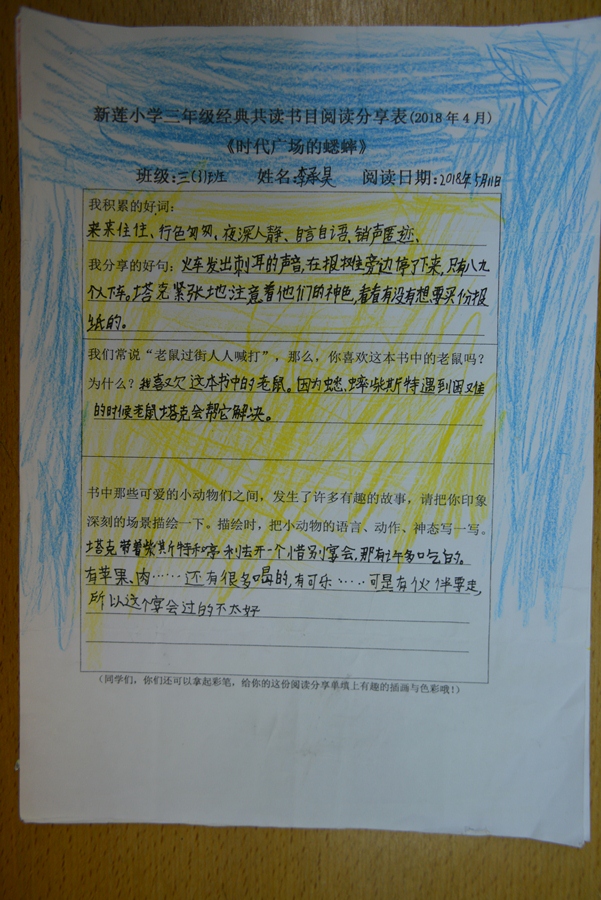 新莲小学三年级经典共读书目阅读分享表(2018年4月)
《时代广场的蟋蟀》
班级:三(3)班 姓名:李承昊 阅读日期:2018年5月11日
我积累的好词:
来来往往、行色匆匆、夜深人静、自言自语、销声匿迹、
我分享的好句:火车发出刺耳的声音,在报摊旁边停了下来,只有八九
个人下车。塔克紧张地注意着他们的神色,看看有没有想要买份报
纸的。
我们常说“老鼠过街人人喊打”,那么,你喜欢这本书中的老鼠吗?
为什么?我喜欢这本书中的老鼠。因为蟋蟀柴斯特遇到困难
的时候老鼠塔克会帮它解决。
书中那些可爱的小动物们之间,发生了许多有趣的故事,请把你印象
深刻的场景描绘一下。描绘时,把小动物的语言、动作、神态写一写。
塔克带着柴斯特和亨利去开一个惜别宴会,那有许多吃的。
有苹果、肉……还有很多喝的,有可乐……可是有伙伴要走,
所以这个宴会过的不太好
(同学们,你们还可以拿起彩笔,给你的这份阅读分享单填上有趣的插画与色彩哦!)